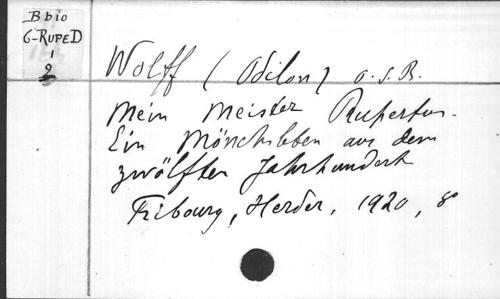 Bbio
6-RUPED
1
2
Wolff (Odilon) o.s.B.
Mein Meister Rupertus.
Ein Mönchsleben aus dem
zwölften Jahrhundert
Fribourg, Herder, 1920, 8°